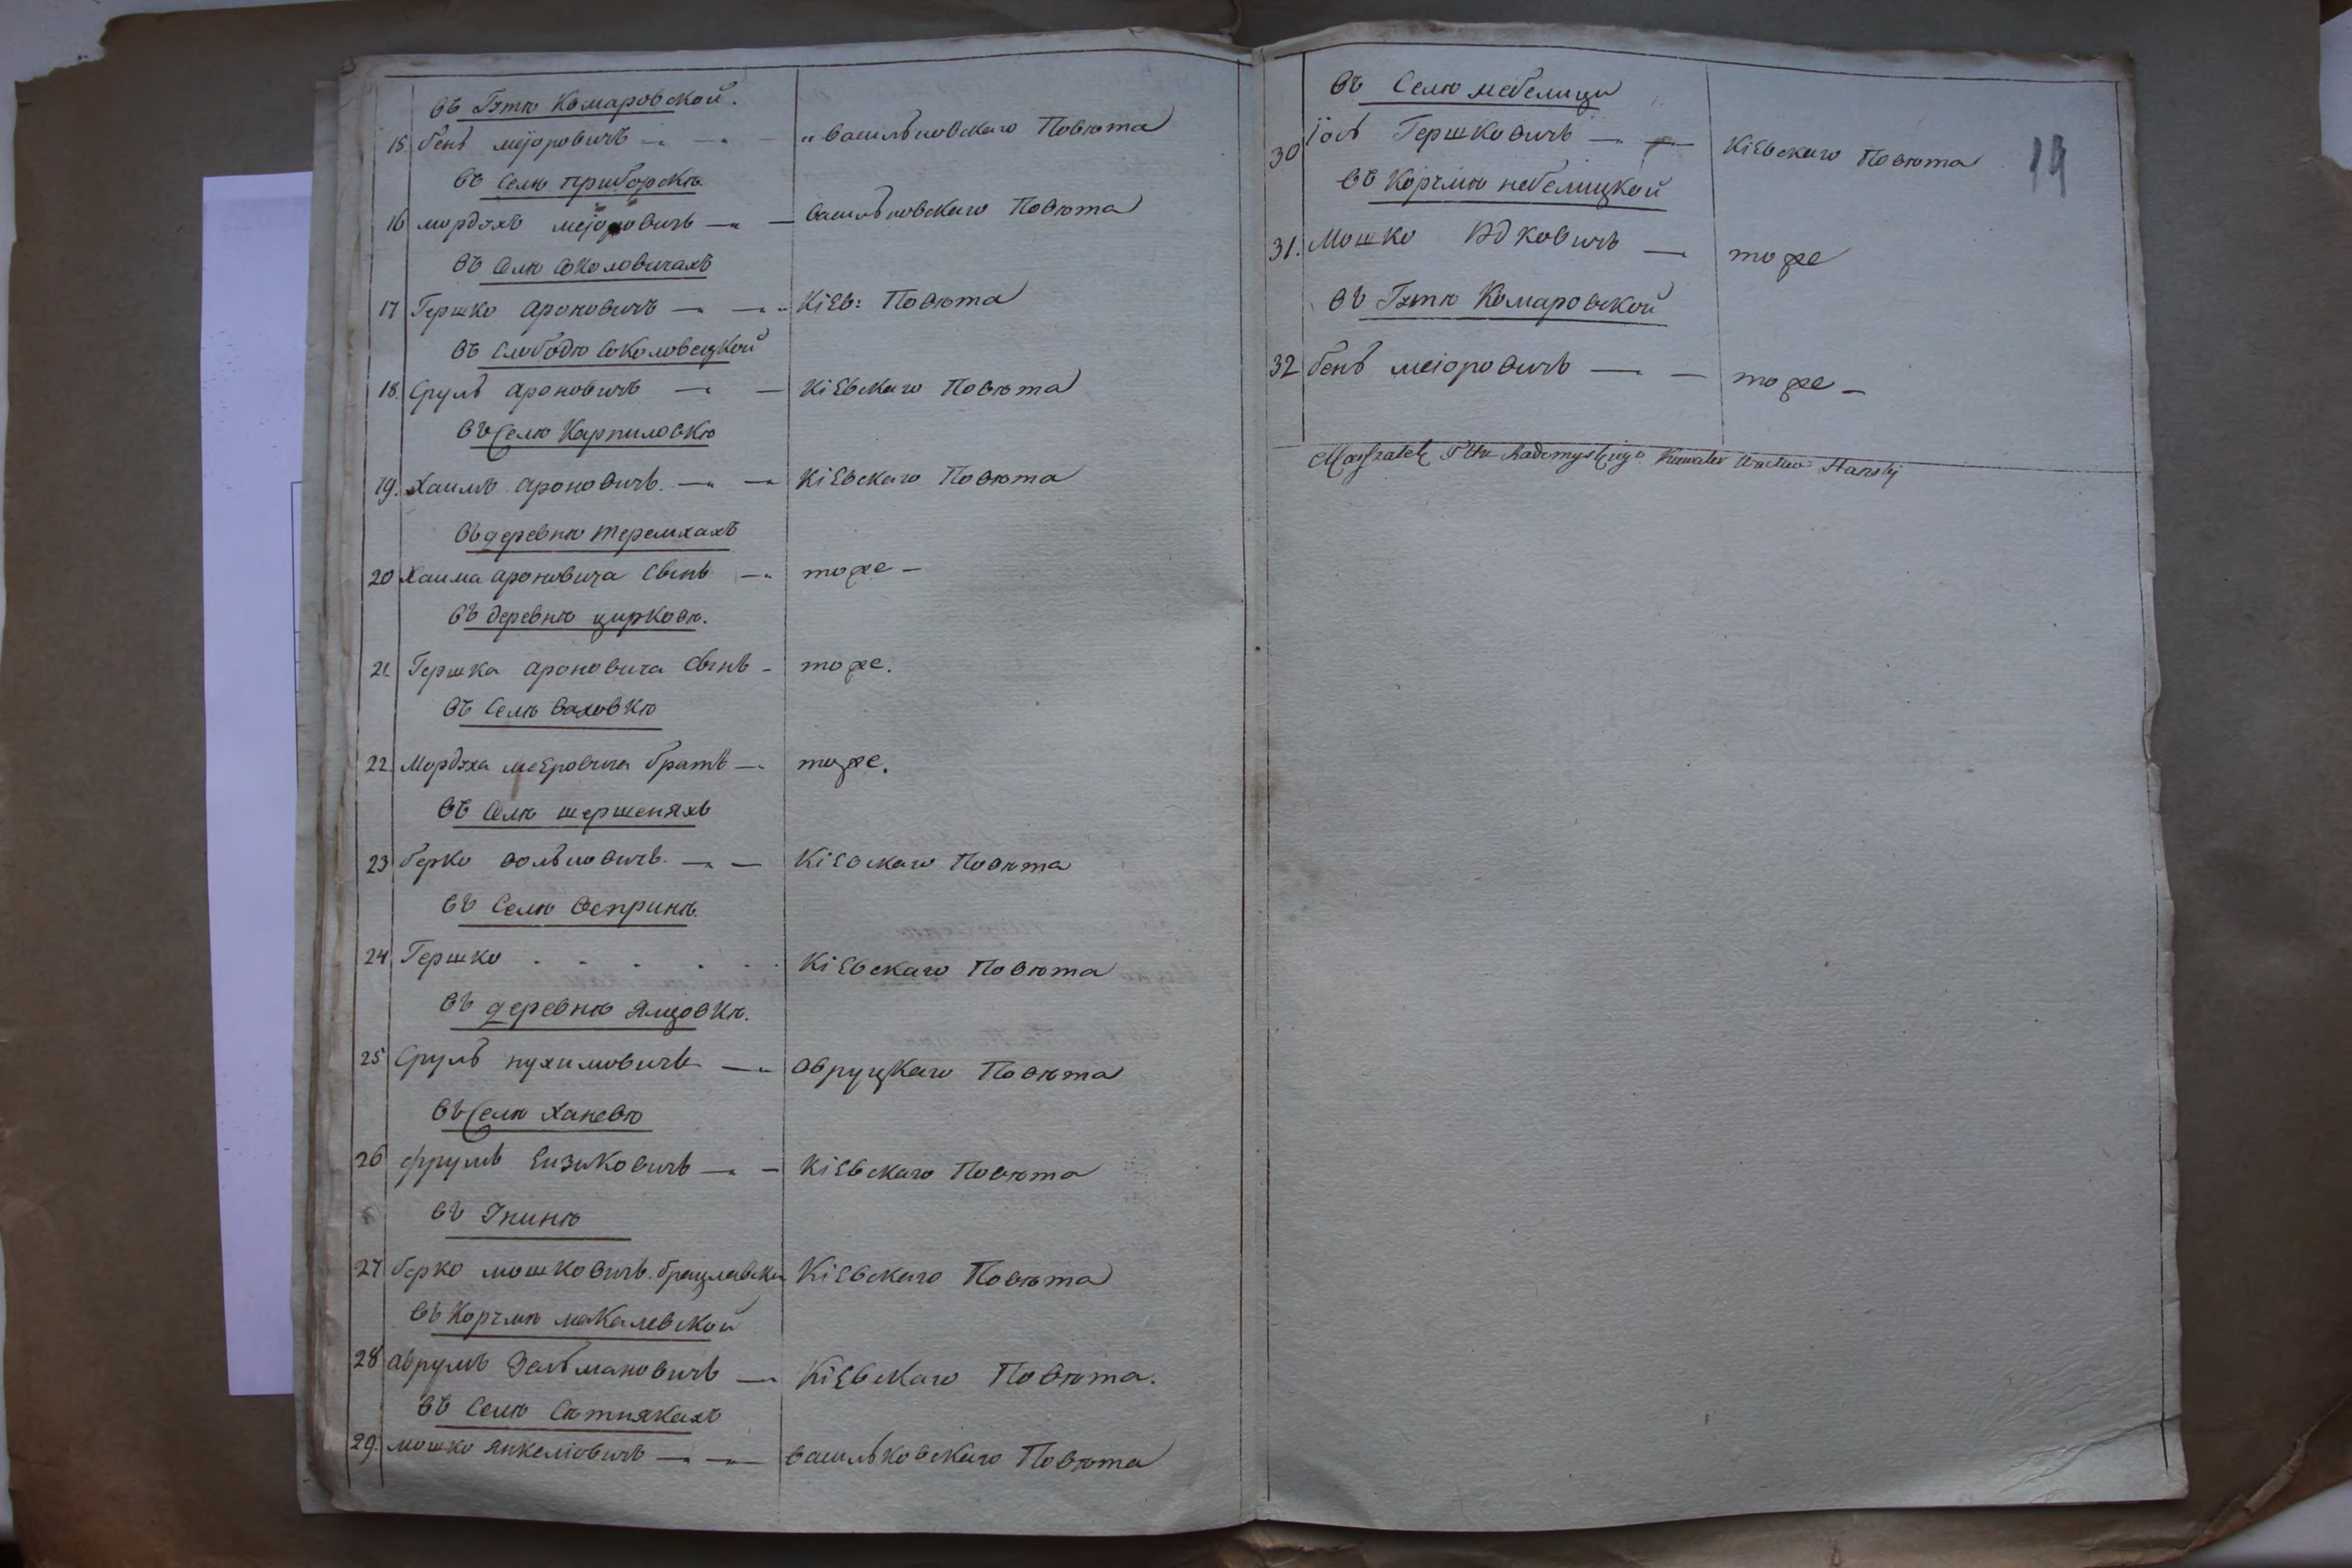 въ Гутѣ Комаровской.
15. бень меіоровичъ — васильковскаго Повѣта
въ Селѣ приборскѣ.
16 мордухъ меіоровичъ — васильковскаго Повѣта
въ Селѣ Соколовичахъ
17 Гершко ароновичъ — Кіев: Повѣта
въ Слободѣ Соколовецкой
18. Сруль ароновичъ — Кіевскаго Повѣта
въ Селѣ Карпиловкѣ
19. Хаимъ ароновичъ. — Кіевскаго Повѣта
въ деревнѣ теремхахъ
20 Хаима ароновича сынъ — тоже —
въ деревнѣ цирковѣ.
21. Гершка ароновича сынъ - тоже.
въ Селѣ ваховкѣ
22. Мордуха меЕровича братъ — тоже.
въ Селѣ шершеняхъ
23 берко вольповичъ. — Кіевскаго Повѣта
въ Селѣ Фепринѣ.
24 Гершко . . . . . . Кіевскаго Повѣта
въ деревнѣ Ямцовкѣ.
25 Сруль нухимовичъ — овруцкаго Повѣта
въ Селѣ Ханевѣ
26 фрумъ Еизиковичъ — Кіевскаго Повѣта
въ Унинѣ
27 берко мошковичъ. брацлавски Кіевскаго Повѣта
въ Корчмѣ макалевской
28 аврумъ Зальмановичъ — Кіевскаго Повѣта.
въ Селѣ Ситнякахъ
29. мошко янкеліовичъ — васильковскаго Повѣта
19
въ Селѣ небелици
30 іось Гершковичъ — Кіевскаго Повѣта
въ Корчмѣ небелицкой
31. Мошко Идковичъ — тоже
въ Гутѣ Комаровской
32 бень меіоровичъ — тоже —
Marszałek Pttu Radomyslskiego Kawaler Wacław Hański